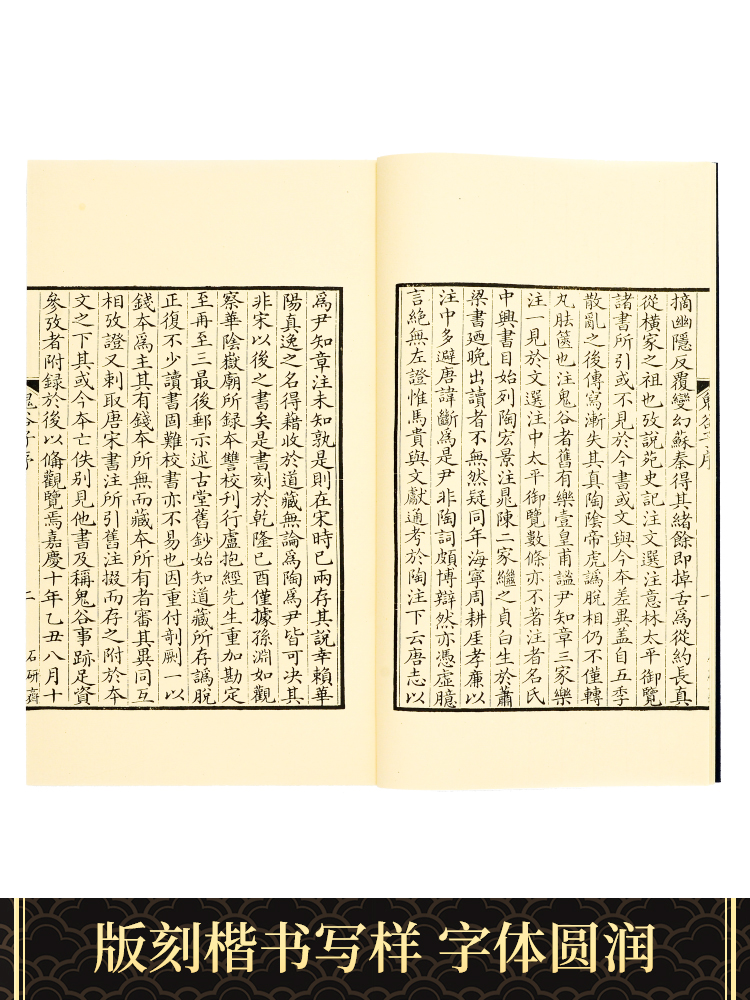 摘幽隱反覆變幻蘇秦得其緒餘即掉舌爲從約長真
從橫家之祖也攷說苑史記注文選注意林太平御覽
諸書所引或不見於今書或文與今本差異蓋自五季
散亂之後傳寫漸失其真陶陰帝虎譌脫相仍不僅轉
丸胠篋也注鬼谷者舊有樂壹皇甫謐尹知章三家樂
注一見於文選注中太平御覽數條亦不著注者名氏
中興書目始列陶宏景注晁陳二家繼之貞白生於蕭
梁書迺晚出讀者不無然疑同年海寧周耕厓孝廉以
注中多避唐諱斷爲是尹非陶詞頗博辯然亦憑虛臆
言絕無左證惟馬貴與文獻通考於陶注下云唐志以
爲尹知章注未知孰是則在宋時已兩存其說幸賴華
陽真逸之名得藉收於道藏無論爲陶爲尹皆可决其
非宋以後之書矣是書刻於乾隆己酉僅據孫淵如觀
察華陰嶽廟所錄本讐校刊行盧抱經先生重加勘定
至再至三最後郵示述古堂舊鈔始知道藏所存譌脫
正復不少讀書固難校書亦不易也因重付剞劂一以
錢本爲主其有錢本所無而藏本所有者審其異同互
相攷證又刺取唐宋書注所引舊注掇而存之附於本
文之下其或今本亡佚别見他書及稱鬼谷事跡足資
參攷者附錄於後以備觀覽焉嘉慶十年乙丑八月十
鬼谷子序
二
石研齋
版刻楷书写样 字体圆润